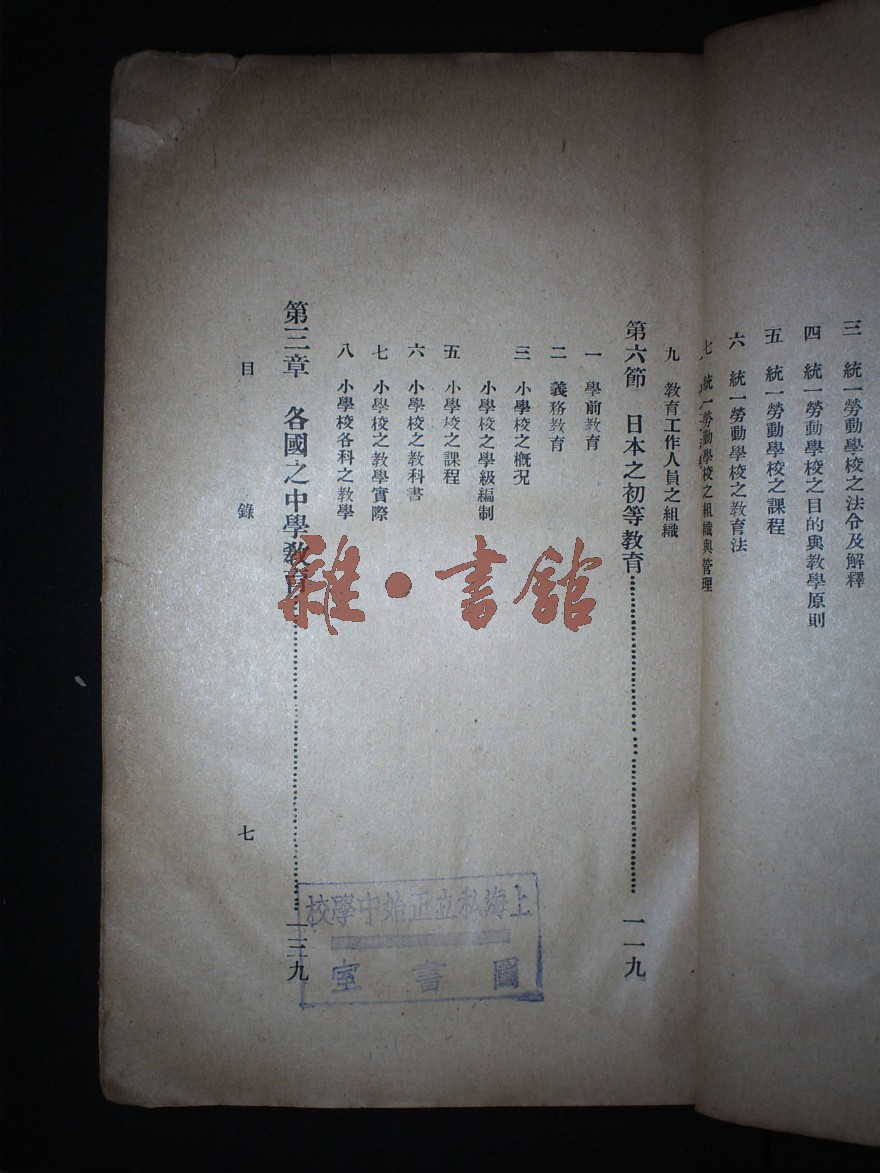 三　統一勞動學校之法令及解釋
四　統一勞動學校之目的與教學原則
五　統一勞動學校之課程
六　統一勞動學校之教育法
七　統一勞動學校之組織與管理
九　教育工作人員之組織
第六節　日本之初等教育……一一九
一　學前教育
二　義務教育
三　小學校之概況
小學校之學級編制
五　小學校之課程
六　小學校之教科書
七　小學校之教學實際
八　小學校各科之教學
第三章　各國之中學教育……一三九
目錄　七
雜·書館
上海私立正始中學校
圖書室